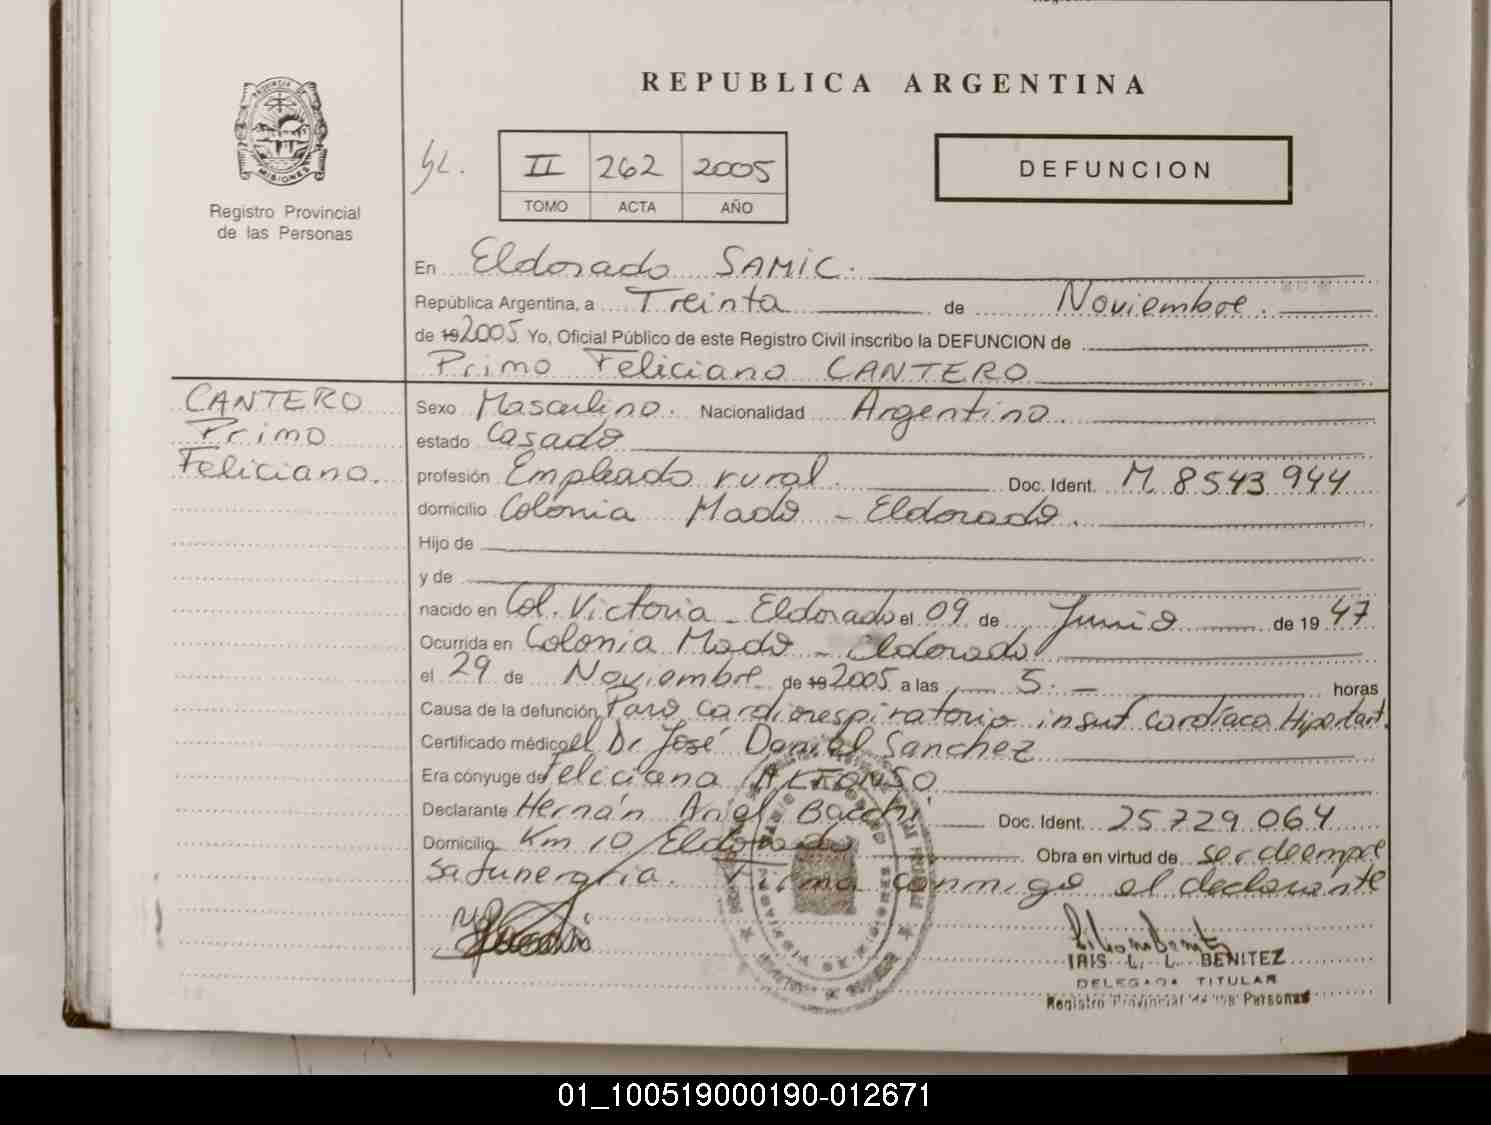 REPUBLICA ARGENTINA
PROVINCIA DE
MISIONES
Registro Provincial
de las Personas
II 262 2005
TOMO ACTA AÑO
DEFUNCION
En Eldorado SAMIC.
República Argentina, a Treinta de Noviembre.
de 19 2005 Yo, Oficial Público de este Registro Civil inscribo la DEFUNCION de
Primo Feliciano CANTERO
CANTERO
Primo
Feliciano.
Sexo Masculino. Nacionalidad Argentino.
estado Casado
profesión Empleado rural. Doc. Ident. M. 8543944
domicilio Colonia Mado - Eldorado.
Hijo de
y de
nacido en Col. Victoria - Eldorado el 09 de Junio de 19 47
Ocurrida en Colonia Mado - Eldorado
el 29 de Noviembre de 19 2005 a las 5. - horas
Causa de la defunción Paro cardiorespiratorio insuf cardíaca Hipertart.
Certificado médico el Dr José Daniel Sanchez
Era cónyuge de Feliciana ALFONSO
Declarante Hernán Ariel Bacchi Doc. Ident. 25729064
Domicilio Km 10 / Eldorado Obra en virtud de ser de empre
sa funeraria. Firma conmigo el declarante
IRIS L. L. BENITEZ
DELEGADA TITULAR
Registro Provincial de las Personas
01_100519000190-012671